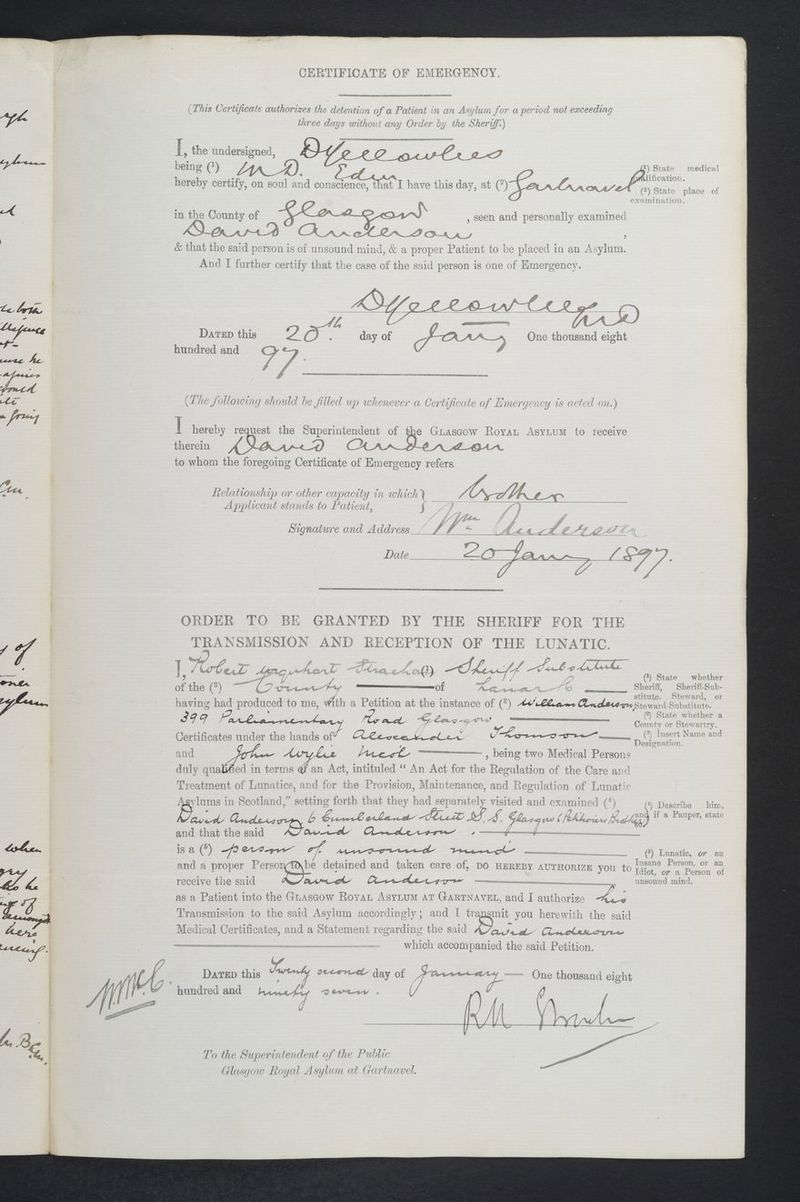 CERTIFICATE OF EMERGENCY.
(This Certificate authorizes the detention of a Patient in an Asylum for a period not exceeding
three days without any Order by the Sheriff.)
I, the undersigned, D Yellowlees
being (¹) M.D. Edin
hereby certify, on soul and conscience, that I have this day, at (²) Gartnavel
(¹) State medical
qualification.
(²) State place of
examination.
in the County of Glasgow , seen and personally examined
David Anderson ,
& that the said person is of unsound mind, & a proper Patient to be placed in an Asylum.
And I further certify that the case of the said person is one of Emergency.
D Yellowlees
MD
DATED this 20th. day of Jany One thousand eight
hundred and 97.
(The following should be filled up whenever a Certificate of Emergency is acted on.)
I hereby request the Superintendent of the GLASGOW ROYAL ASYLUM to receive
therein David Anderson
to whom the foregoing Certificate of Emergency refers.
Relationship or other capacity in which
Applicant stands to Patient, } brother
Signature and Address Wm Anderson
Date 20 Jany 1897.
ORDER TO BE GRANTED BY THE SHERIFF FOR THE
TRANSMISSION AND RECEPTION OF THE LUNATIC.
I, Robert Urquhart Strachan (¹) Sheriff Substitute
of the (²) County of Lanark
having had produced to me, with a Petition at the instance of (³) William Anderson
399 Parliamentary Road Glasgow
Certificates under the hands of Alexander Thomson
and John Wylie Nicol , being two Medical Persons
duly qualified in terms of an Act, intituled “ An Act for the Regulation of the Care and
Treatment of Lunatics, and for the Provision, Maintenance, and Regulation of Lunatic
Asylums in Scotland,” setting forth that they had separately visited and examined (⁴)
David Anderson, 6 Cumberland Street S.S. Glasgow (Petitioners Brother)
and that the said David Anderson .
is a (⁵) person of unsound mind
and a proper Person to be detained and taken care of, DO HEREBY AUTHORIZE you to
receive the said David Anderson
as a Patient into the GLASGOW ROYAL ASYLUM AT GARTNAVEL, and I authorize his
Transmission to the said Asylum accordingly; and I transmit you herewith the said
Medical Certificates, and a Statement regarding the said David Anderson
which accompanied the said Petition.
(¹) State whether
Sheriff, Sheriff-Sub-
stitute, Steward, or
Steward-Substitute.
(²) State whether a
County or Stewartry.
(³) Insert Name and
Designation.
(⁴) Describe him,
and if a Pauper, state
so.
(⁵) Lunatic, or an
Insane Person, or an
Idiot, or a Person of
unsound mind.
DATED this Twenty second day of January One thousand eight
hundred and ninety seven .
To the Superintendent of the Public
Glasgow Royal Asylum at Gartnavel.